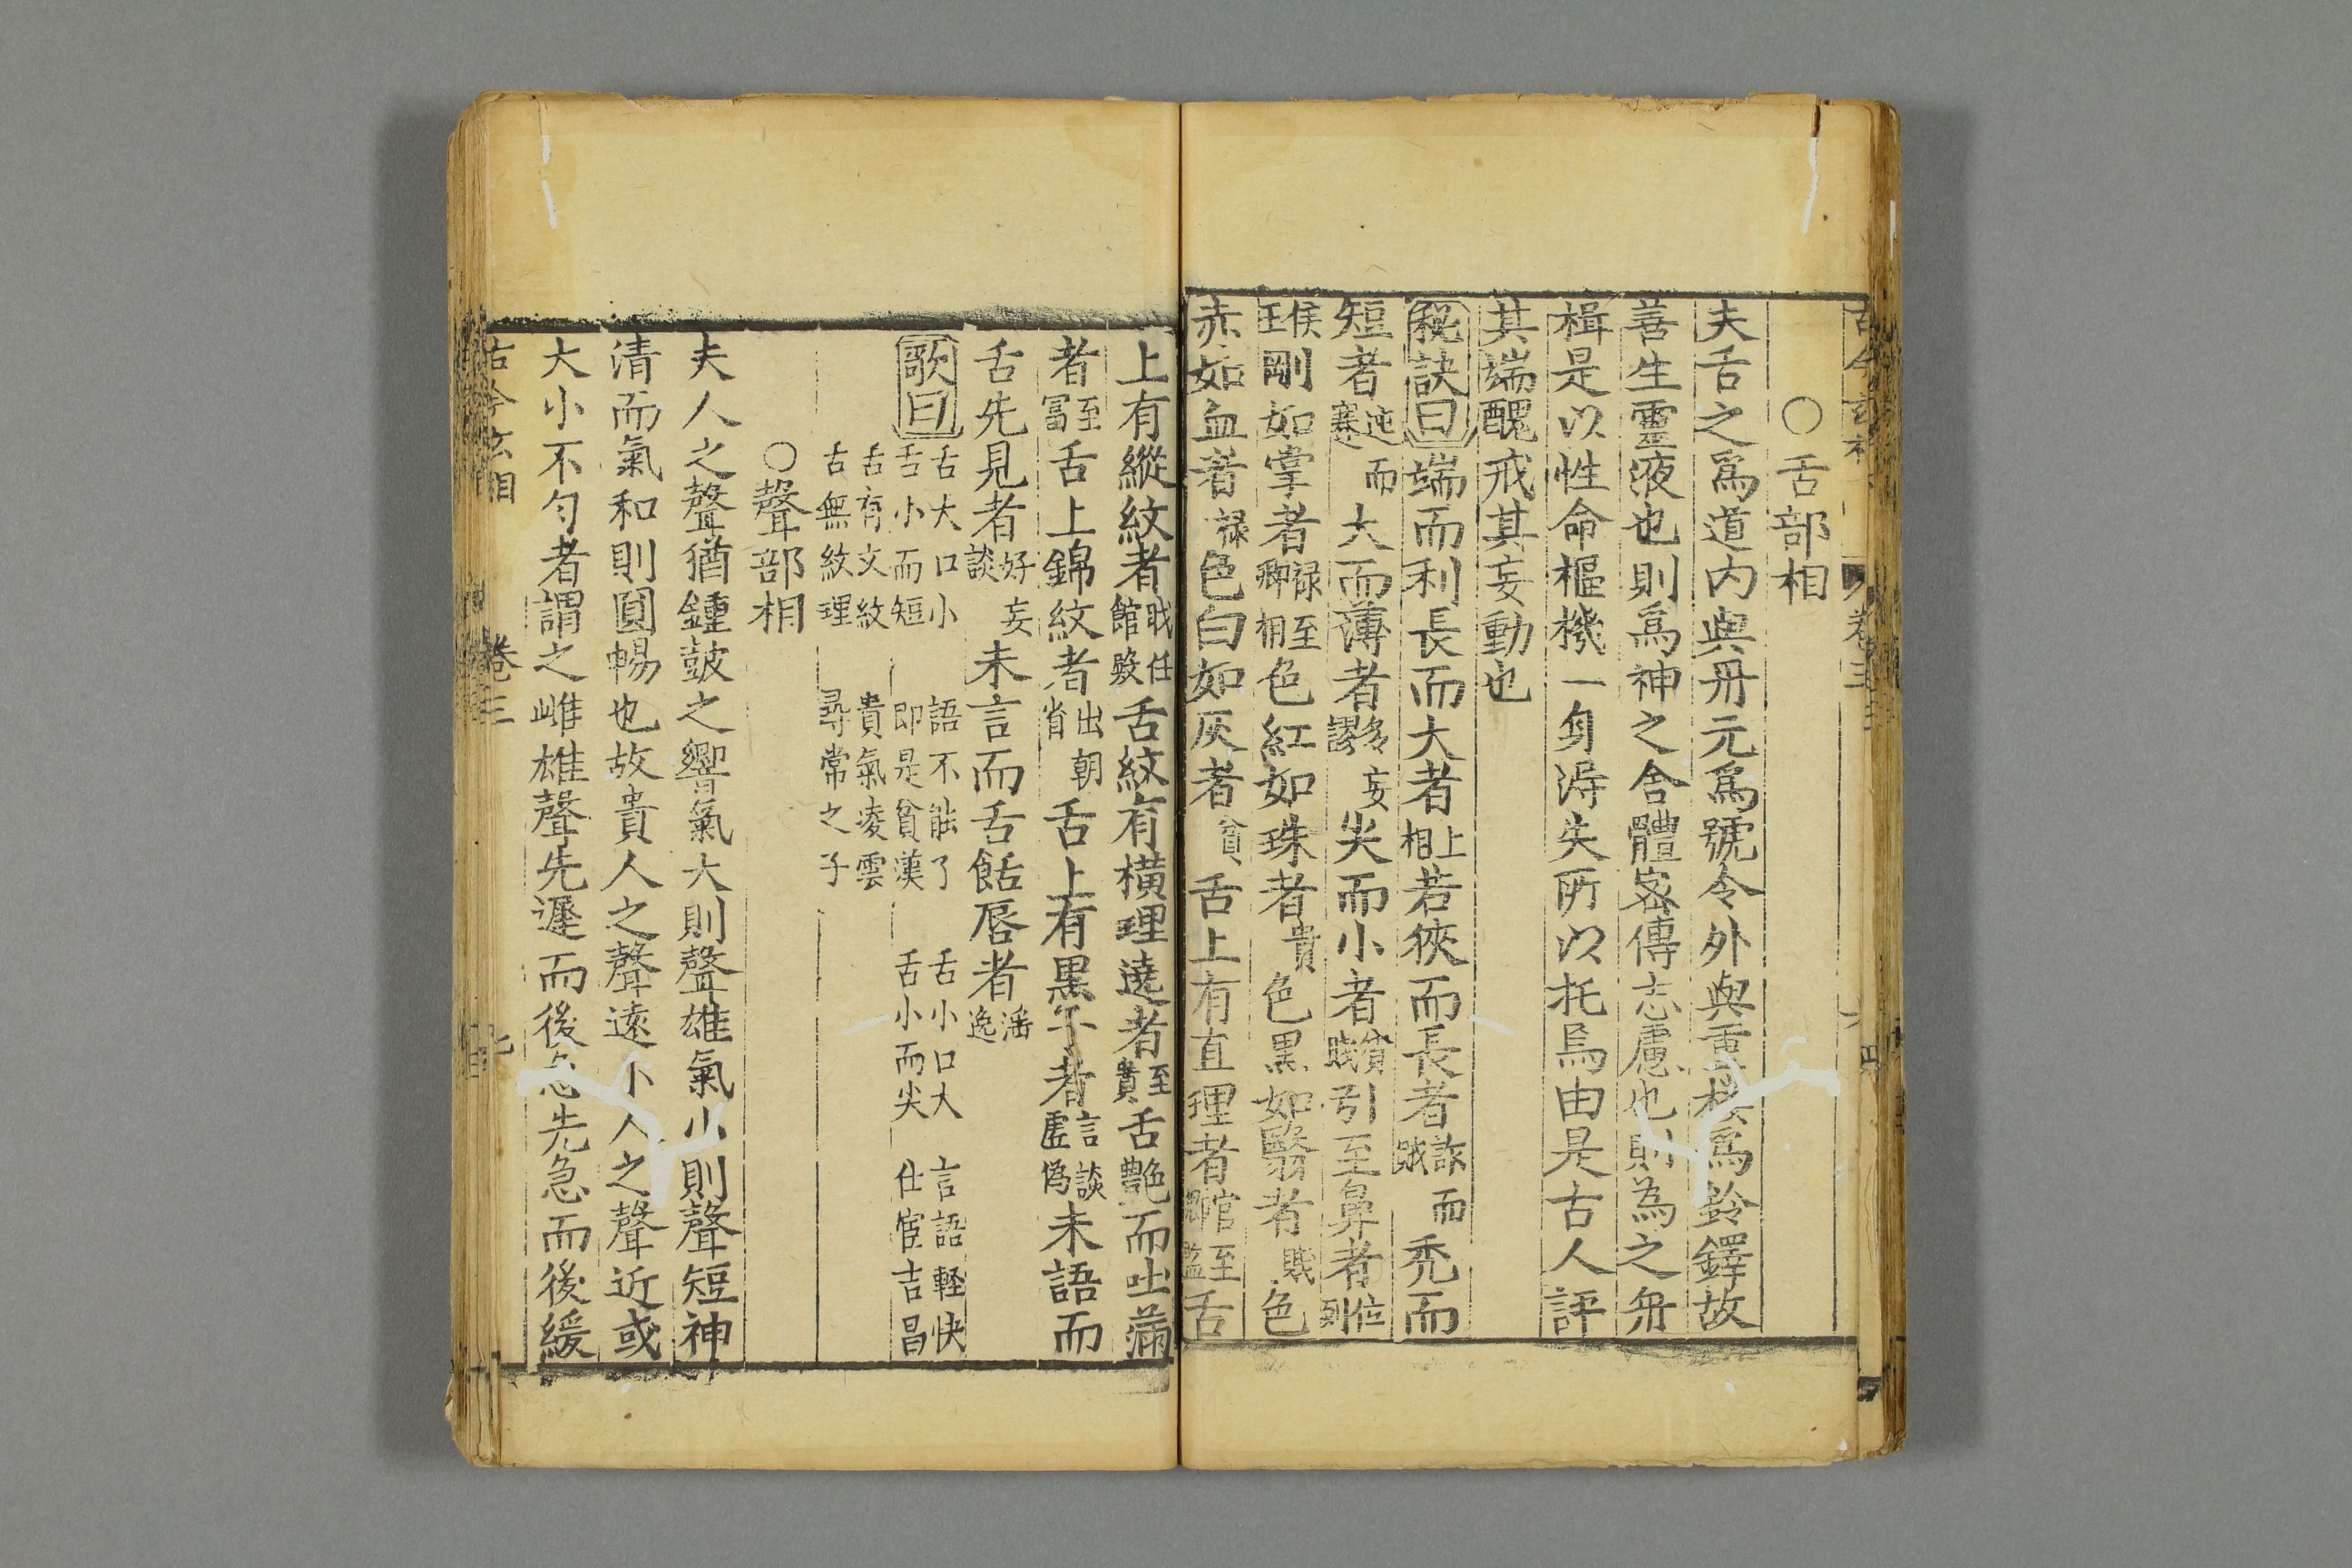 ○舌部相
夫舌之爲道内與丹元爲號令外與重樓爲鈴鐸故
善生靈液也則爲神之舍體密傳志慮也則為之舟
楫是以性命樞機一身淂失所以托焉由是古人評
其端醜戒其妄動也
秘訣曰端而利長而大者上相若狹而長者詐而賊禿而
短者迍而蹇大而薄者多妄謬尖而小者貧賤引至鼻者位列
侯王剛如掌者禄至卿相色紅如珠者貴色黒如翳者賤色
赤如血者禄色白如灰者貧舌上有直理者官至卿監舌
上有縱紋者職任館殿舌紋有橫理遶者至貴舌艶而吐滿
者至冨舌上錦紋者出朝省舌上有黒子者言談虛偽未語而
舌先見者好妄談未言而舌餂唇者滛逸
歌曰舌大口小 語不能了 舌小口大 言語軽快
舌小而短 即是貧漢 舌小而尖 仕宦吉昌
舌有文紋 貴氣凌雲
古無紋理 尋常之子
○聲部相
夫人之聲猶鍾皷之響氣大則聲雄氣小則聲短神
清而氣和則圓暢也故貴人之聲遠小人之聲近或
大小不匀者謂之雌雄聲先遲而後急先急而後緩
古今玄相 卷三 七